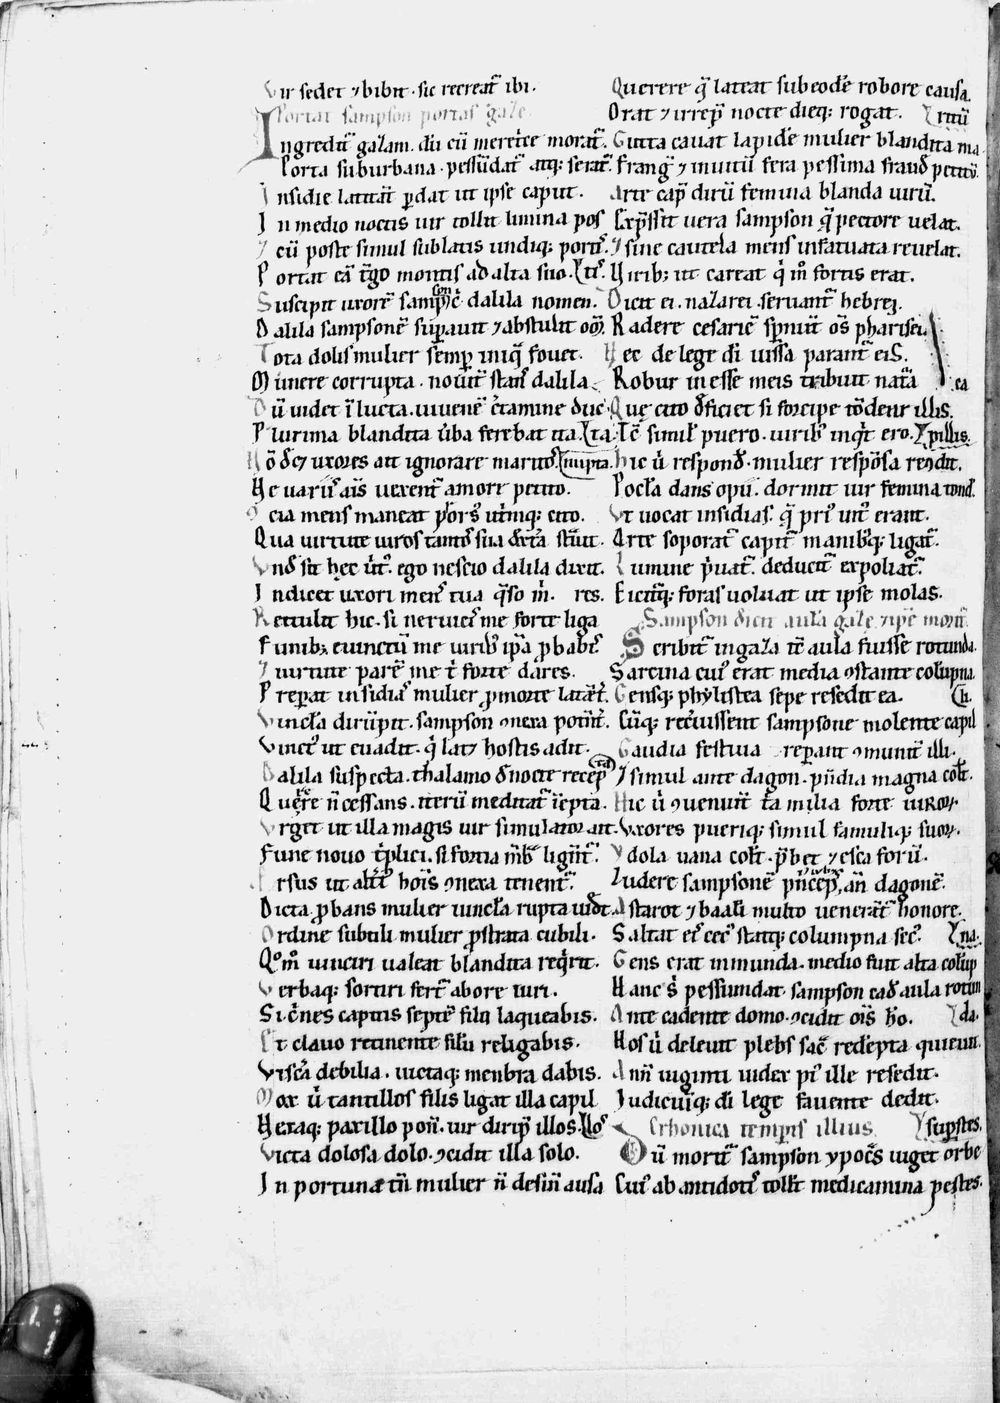 Vir sedet ⁊ bibit · sic recreat̄ ibi.
Portat sampson portas gaze
Ingredit̄ gazam. dū cū meret̓ce morat̄.
Porta suburbana · pessūdat̄ atq; serat̄.
Insidie latitāt ꝑdat ut ipse caput.
In medio noctis uir tollit limina pos
⁊ cū poste simul sublatis undiq; port᷒. [tis.
Portat eā t̓go montis ad alta suo.
Suscipit uxorē sampson c̓ dalila nomen.
Dalila sampsonē suꝑauit ⁊ abstulit om̄
Tota dolis mulier semꝑ iniq̄ fouet.
Munere corrupta · nouit̄ stans dalila
Dū uidet ī lucta · uiuenē c̓tamine duc
Plurima blandita ūba ferebat ita. [ta.
Nō dec⁊ uxores ait ignorare marito᷒ [nupta.
He uarıı᷒ aīs uexent̄ amore petito.
ꝯcia mens maneat ꝓrs᷒ ut̓mq; cito.
Qua uirtute uiros tanto᷒ sua dext̓a st̓uit.
Vnde sit hec ūt᷒. ego nescio dalila dixit.
Indicet uxori mens tua q̄so m̓. res.
Rettulit hic · si neruice᷒ me forte liga
Funib; euinctū me uirib᷒ ip̄a ꝓbabis
⁊ uirtute parē me t̓ forte dares.
Preꝑat insidias mulier ꝓ morte latāt̓.
Vincl̄a dirūpit · sampson ꝯnexa potit̄.
Vinct᷒ ut euadit · q̓ lat⁊ hostis adit.
Dalila suspecta · thalamo de nocte recepta
Querere n̄ cessans · iterū meditat̄ īcepta.
Vrget ut illa magis uir simulator ait.
Fune nouo t̓plici · si fortia mēb̄ ligīt̄.
Arsus ut alt̓i᷒ hoīs ꝯnexa tenent̄.
Dicta ꝓbans mulier uincl̄a rupta uidet.
Ordine subtili mulier ꝓstrata cubili.
Qom̄ uinciri ualeat blandita req̓rit.
Verbaq; sortiri fert̄ abore uiri.
Si c̓nes capitis septē filo laqueabis.
Et clauo retinente filū religabis.
Viscera debilia · uictaq; menbra dabis.
Mox ū̓ tantillos filis ligat illa capil
Heraq; paxillo poñ · uir dirip̄ illos. [los
Victa dolosa dolo · ꝯcidit illa solo.
Inportuna tn̄ mulier n̄ desin̄ ausa
Querere q̄ lateat sub eodē robore causa.
Orat ⁊ irrep̄ nocte dieq; rogat. [ritū
Gutta cauat lapidē mulier blandita ma
Frang̓ ⁊ inuitū fera pessima fraude petitū.
Arte cap̄ dirū femina blanda uirū.
Exp̄ssit uera sampson q̄ pectore uelat.
⁊ sine cautela mens infatuata reuelat.
Virib; ut careat q̓ m̓ fortis erat.
Dicit ei · nazarei · seruant̄ hebrei.
Radere cesariē sp̄nūt os̄ pharisei.
Hec de lege di̓ uissa parant̄ eis.
Robur inesse meis tribuit nat̄a ea
Que cito deficiet si forcipe tōdetur illis.
Tē simil᷒ puero · uirib᷒ inq̓t ero. [pillis.
Hic ū̓ respond̓ · mulier respōsa rep̄dit.
Pocl̄a dans opū̓ dormit uir femina tond̓.
Vt uocat insidias q̄ pri᷒ unt̓ erant.
Arte soporat̄ capit̄ manibūq; ligat̄.
Lumine p̓uat̄ · deducit̄ expoliat̄.
Eicitq; foras uoluat ut ipse molas.
Sampson deicit aulā gaze ⁊ ip̄e morit̄
Scribit̄ in gaza tē aula fuisse rotunda.
Sarcina cui᷒ erat media ꝯstante colupna.
Gensq; phylistea sepe resedit ea. [li.
Cūq; rec̓uissent sampsone molente capil
Gaudia festiua reꝑant ꝯmunit̄ illi.
⁊ simul ante dagon · p̄ndia magna colt̓.
Hic ū̓ ꝯuenūit t̓a milia forte uiroꝝ.
Vxores pueriq; simul famuliq; suoꝝ.
Ydola uana colt̓ · p̄bet ⁊ esca forū.
Ludere sampsonē p̄ncep̄ an̄ dagonē.
Astarot ⁊ baali multo uenerāt̄ honore.
Saltat et᷒ cec᷒ statq; columpna sec᷒. [na.
Gens erat inmunda · medio fuit alta colūp
Hanc s̓ pessundat · sampson cadē aula rotun
Ante cadente domo · ꝯcidit ois̄ ho̅. [da.
Hos ū̓ deleuit plebs sac̄ redēpta quieuit.
Annı uiginti uidex pi᷒ ille resedit.
Judiciūq; di̓ lege fauente dedit.
Chronica temꝑis illius [suꝑstes.
Dū morit̄ sampson ypoc̓s uiget orbe
Cui᷒ ab antidoti᷒ tollt̓ medicamina pestes.